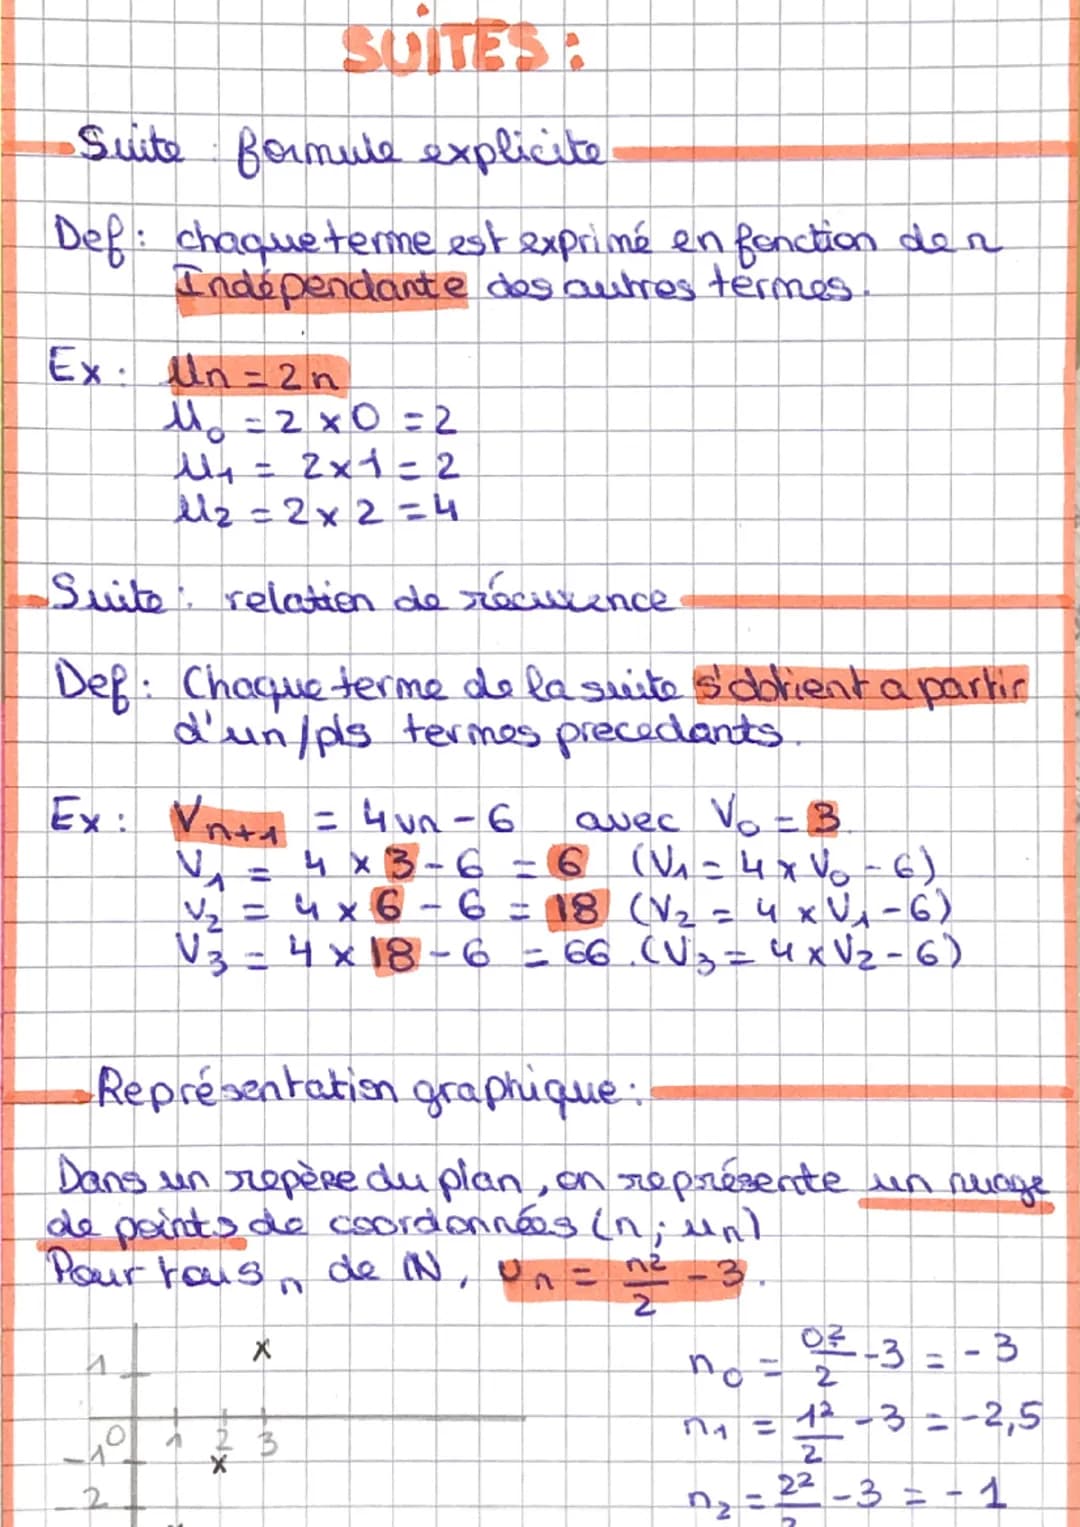 SUITES :
Suite : formule explicite
Def : chaque terme est exprimé en fonction de n
Indépendante des autres termes.
Ex : Un = 2n
U₀ = 2 × 0 = 2
U₁ = 2 × 1 = 2
U₂ = 2 × 2 = 4
Suite : relation de récurence
Def : Chaque terme de la suite s'obtient a partir
d'un/pls termes precedants.
Ex : Vn+1 = 4vn - 6 avec V₀ = 3
V₁ = 4 × 3 - 6 = 6 (V₁ = 4 × V₀ - 6)
V₂ = 4 × 6 - 6 = 18 (V₂ = 4 × V₁ - 6)
V₃ = 4 × 18 - 6 = 66. (V₃ = 4 × V₂ - 6)
Représentation graphique :
Dans un repère du plan, on représente un nuage
de points de coordonnées (n ; un)
Pour tous n de ℕ, Un = n²/2 - 3.
n₀ = 0²/2 - 3 = -3
n₁ = 1²/2 - 3 = -2,5
n₂ = 2²/2 - 3 = -1
1
0 1 2 3
-1
-2